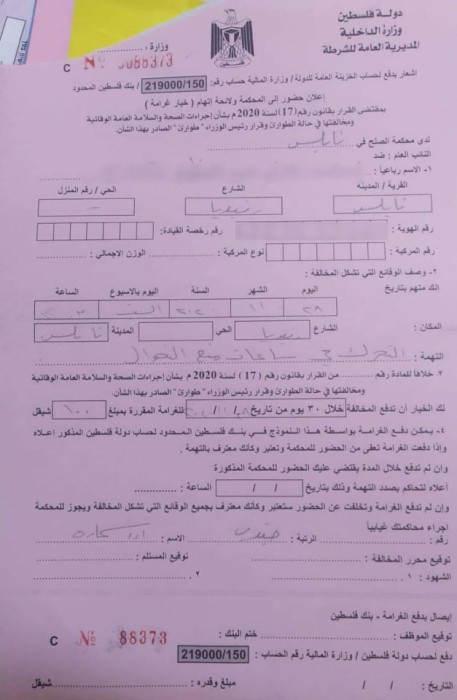 دولة فلسطين
وزارة الداخلية
المديرية العامة للشرطة
وزارة :
C Nº 0088373
اشعار بدفع لحساب الخزينة العامة للدولة / وزارة المالية حساب رقم: 219000/150 / بنك فلسطين المحدود
إعلان حضور إلى المحكمة ولائحة إتهام ( خيار غرامة )
بمقتضى القرار بقانون رقم (17) لسنة 2020 م بشأن إجراءات الصحة والسلامة العامة الوقائية
ومخالفتها في حالة الطوارئ وقرار رئيس الوزراء "طوارئ" الصادر بهذا الشأن.
لدى محكمة الصلح في نابلس
النائب العام : ضد
١- الاسم رباعياً :
القرية / المدينة الشارع الحي / رقم المنزل
نابلس رفيديا -
رقم الهوية : رقم رخصة القيادة:
رقم المركبة : نوع المركبة : الوزن الاجمالي :
٢- وصف الوقائع التي تشكل المخالفة :
انك متهم بتاريخ اليوم الشهر السنة اليوم بالاسبوع الساعة
٢٨ ١١ ٢٠٢٠ السبت
المكان : الشارع رفيديا الحي المدينة نابلس
التهمة : التحرك في ساعات منع التجوال
٣- خلافاً للمادة رقم من القرار بقانون رقم ( 17 ) لسنة 2020 م بشأن إجراءات الصحة والسلامة العامة الوقائية
ومخالفتها في حالة الطوارئ وقرار رئيس الوزراء "طوارئ" الصادر بهذا الشأن.
لك الخيار أن تدفع المخالفة خلال ٣٠ يوم من تاريخ / / للغرامة المقررة بمبلغ ١٠٠ شيقل
٤- يمكن دفع الغرامة بواسطة هذا النموذج في بنك فلسطين المحدود لحساب دولة فلسطين المذكور اعلاه
وإذا دفعت الغرامة تعفي من الحضور للمحكمة وتعتبر وكأنك معترف بالتهمة .
وإن لم تدفع خلال المدة يقتضي عليك الحضور للمحكمة المذكورة
أعلاه لتحاكم بصدد التهمة وذلك بتاريخ / / الساعة :
وإن لم تدفع الغرامة وتخلفت عن الحضور ستعتبر وكأنك معترف بجميع الوقائع التي تشكل المخالفة ويجوز للمحكمة
اجراء محاكمتك غيابياً
رقم : الرتبة : الاسم :
توقيع محرر المخالفة : توقيع المستلم :
الشهود : ١ . ٢ .
إيصال بدفع الغرامة - بنك فلسطين
توقيع الموظف : ختم البنك :
C Nº 88373
دفع لحساب دولة فلسطين / وزارة المالية رقم الحساب : 219000/150
التاريخ : / / مبلغ وقدره : شيقل